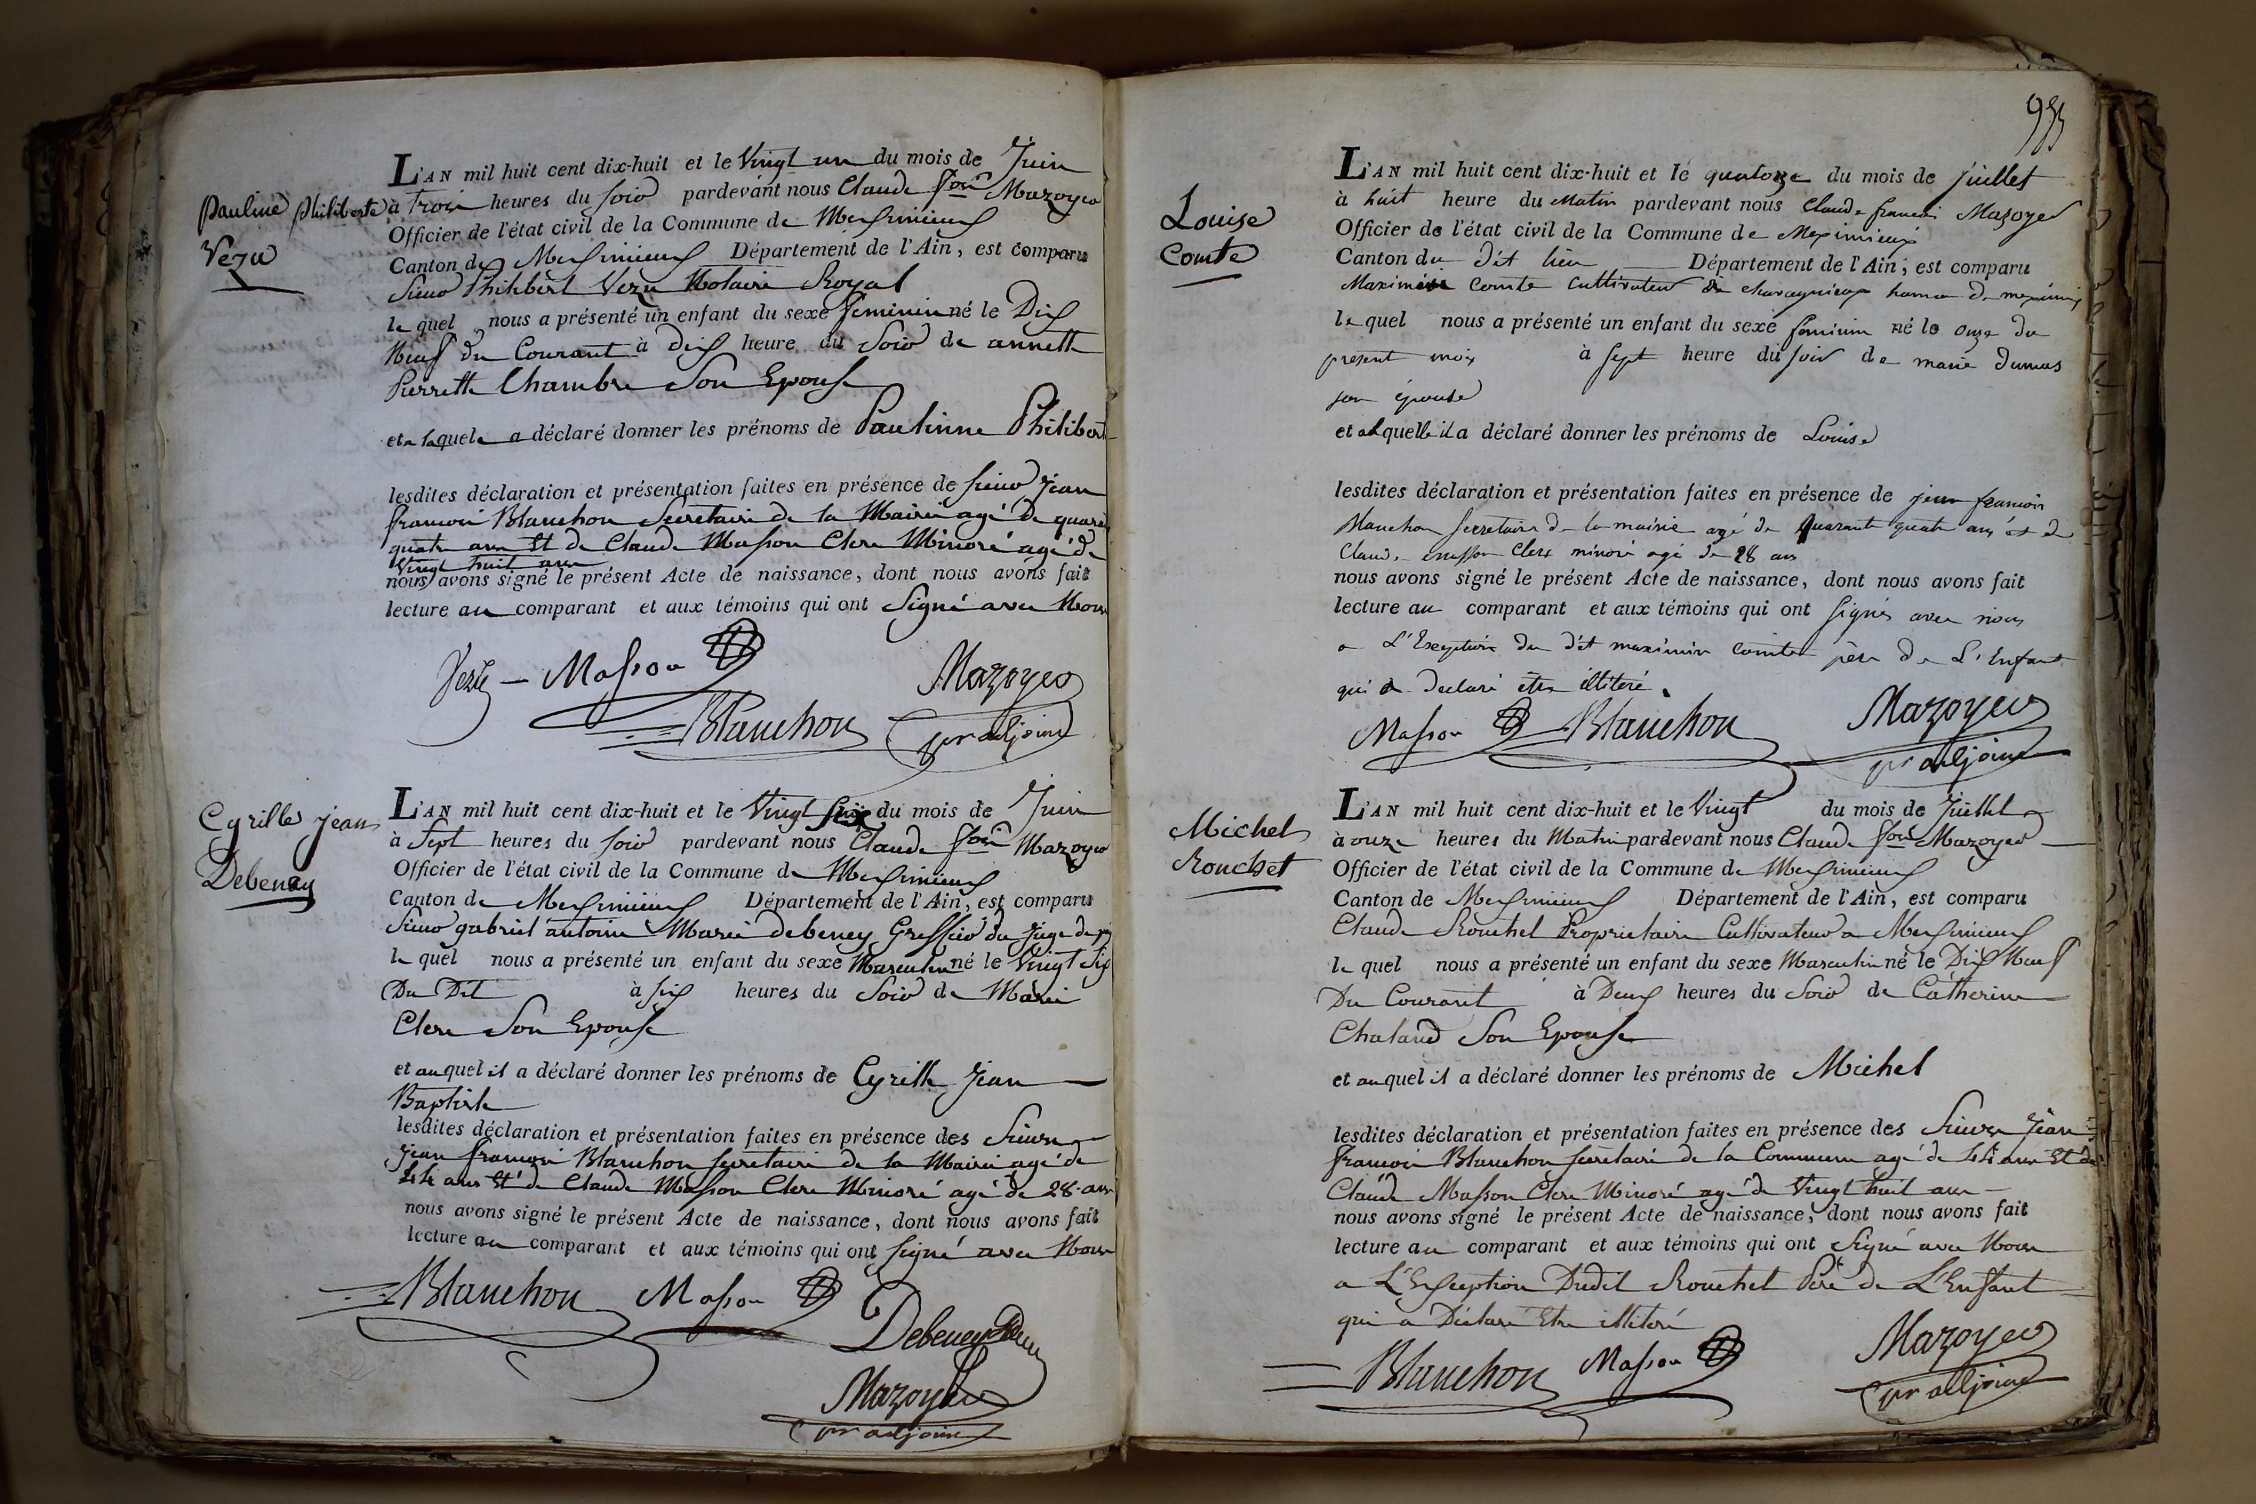 Pauline Philiberte
Vezu
L'AN mil huit cent dix-huit et le Vingt un du mois de Juin
à trois heures du soir pardevant nous Claude fois Mazoyer
Officier de l'état civil de la Commune de Meximieux
Canton de Meximieux Département de l'Ain, est comparu
Sieur Philibert Vezu Notaire Royal
le quel nous a présenté un enfant du sexe feminin né le Dix
Neuf du Courant à dix heure du Soir de annette
Pierrette Chambre Son Epouse
et a laquele a déclaré donner les prénoms de Paulinne Philibert
lesdites déclaration et présentation faites en présence de sieur Jean
francois Blanchon Secretaire de la Mairie agé de quarente
quatre ans Et de Claude Masson Clerc Minoré agé de
Vingt huit ans
nous avons signé le présent Acte de naissance, dont nous avons fait
lecture au comparant et aux témoins qui ont Signé avec Nous
Vezu Masson
Mazoyer
Blanchon
pr adjoint
Cyrille Jean
Debeney
L'AN mil huit cent dix-huit et le Vingt Six du mois de Juin
à Sept heures du soir pardevant nous Claude fois Mazoyer
Officier de l'état civil de la Commune de Meximieux
Canton de Meximieux Département de l'Ain, est comparu
Sieur gabriel antoine Marie debeney Greffier du Juge de
le quel nous a présenté un enfant du sexe Masculin né le Vingt Six
Du Dit à six heures du Soir de Marie
Clerc Son Epouse
et auquel il a déclaré donner les prénoms de Cyrille Jean
Baptiste
lesdites déclaration et présentation faites en présence des Sieurs
Jean francois Blanchon secretaire de la Mairie agé de
44 ans Et de Claude Masson Clerc Minoré agé de 28 ans
nous avons signé le présent Acte de naissance, dont nous avons fait
lecture au comparant et aux témoins qui ont signé avec Nous
Blanchon Masson
Debeney
Mazoyer
pr adjoint
Louise
Comte
L'AN mil huit cent dix-huit et le quatorze du mois de Juillet
à huit heure du Matin pardevant nous Claude francois Mazoyer
Officier de l'état civil de la Commune de Meximieux
Canton du dit lieu Département de l'Ain, est comparu
Maximin Comte Cultivateur de chavagnieux hameau de meximieux
le quel nous a présenté un enfant du sexe feminin né le onze du
present mois à sept heure du soir de marie dumas
son épouse
et a laquelle il a déclaré donner les prénoms de Louise
lesdites déclaration et présentation faites en présence de jean francois
Blanchon Secretaire de la mairie agé de quarante quatre ans et de
Claude masson Clerc minoré agé de 28 ans
nous avons signé le présent Acte de naissance, dont nous avons fait
lecture au comparant et aux témoins qui ont signés avec nous
a L'Exception du dit maximin comte père de L'Enfant
qui a declaré etre illiteré.
Masson Blanchon Mazoyer
pr adjoint
Michel
Rouchet
L'AN mil huit cent dix-huit et le Vingt du mois de Juillet
à onze heures du Matin pardevant nous Claude fois Mazoyer
Officier de l'état civil de la Commune de Meximieux
Canton de Meximieux Département de l'Ain, est comparu
Claude Rouchet Proprietaire Cultivateur a Meximieux
le quel nous a présenté un enfant du sexe Masculin né le Dix Neuf
Du Courant à Deux heures du Soir de Catherine
Chaland Son Epouse
et auquel il a déclaré donner les prénoms de Michel
lesdites déclaration et présentation faites en présence des Sieurs Jean
francois Blanchon secretaire de la Commune agé de 44 ans Et de
Claude Masson Clerc Minoré agé de Vingt huit ans
nous avons signé le présent Acte de naissance, dont nous avons fait
lecture au comparant et aux témoins qui ont Signé avec Nous
a L'Exception Dudit Rouchet Pere de L'Enfant
qui a Déclaré Etre illiteré
Blanchon Masson
Mazoyer
pr adjoint